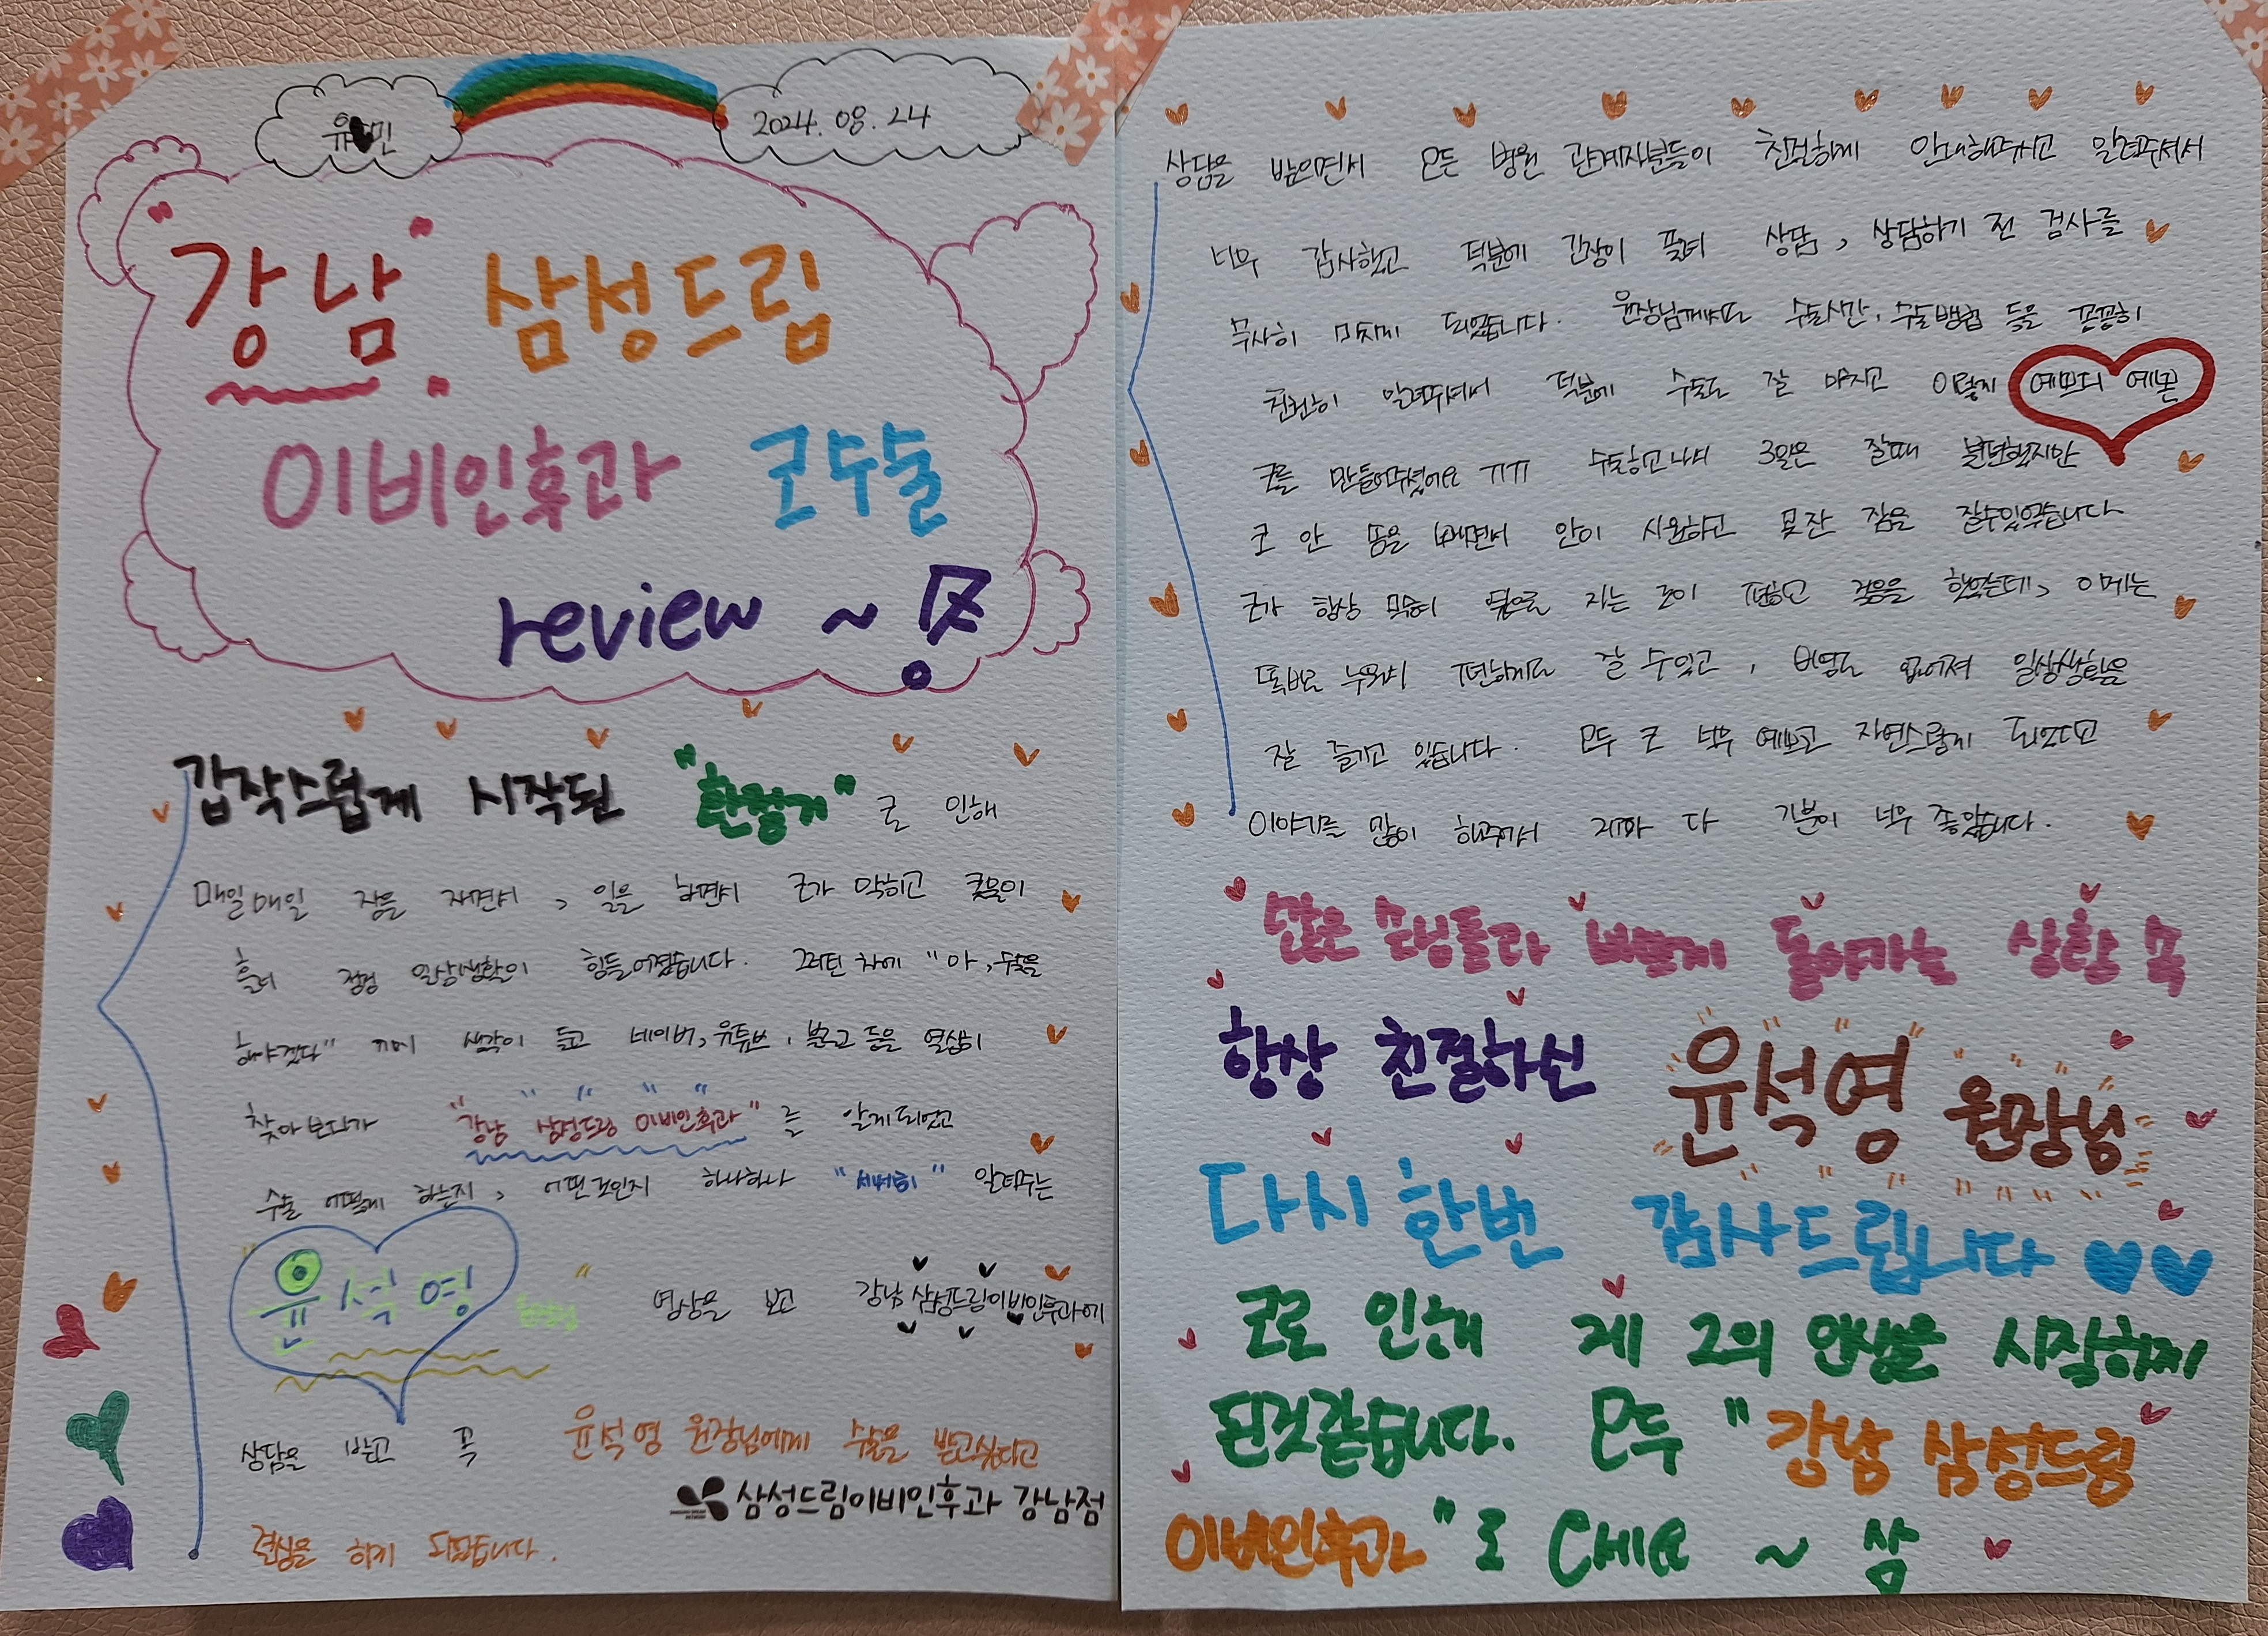 유 민
2024. 08. 24
"강남" 삼성드림
이비인후과 코수술
review ~
갑작스럽게 시작된 "환절기"로 인해
매일매일 잠을 자면서, 일을 하면서 코가 막히고 콧물이
흘러 점점 일상생활이 힘들어졌습니다. 그러던 차에 "아, 수술을
해야겠다" 생각이 들고 네이버, 유튜브, 블로그 등을 열심히
찾아보다가 "강남 삼성드림 이비인후과"를 알게되었고
수술 어떻게 하는지, 어떤것인지 하나하나 "세세히" 알려주는
"윤석영 원장님" 영상을 보고 강남 삼성드림이비인후과에
상담을 받고 꼭 윤석영 원장님에게 수술을 받고싶다고
삼성드림이비인후과 강남점
결심을 하게 되었습니다.
상담을 받으면서 모든 병원 관계자분들이 친절하게 안내해주시고 알려주셔서
너무 감사했고 덕분에 긴장이 풀려 상담, 상담하기 전 검사를
무사히 마치게 되었습니다. 원장님께서도 수술시간, 수술방법 등을 꼼꼼히
천천히 알려주셔서 덕분에 수술도 잘 마치고 이렇게 예쁘디 예쁜
코를 만들어주셨어요 ㅠㅠ 수술하고나서 3일은 잘때 불편했지만
코 안 솜을 빼면서 안이 시원하고 못잔 잠을 잘수있었습니다
코가 항상 막혀 옆으로 자는 것이 편하고 잤는데, 이제는
똑바로 누워서 편하게도 잘 수있고, 비염도 없어져 일상생활을
잘 즐기고 있습니다. 모두 코 너무 예쁘고 자연스럽게 되었다고
이야기를 많이 해주셔서 제가 다 기분이 너무 좋았습니다.
많은 수술들과 바쁘게 돌아가는 상황 속
항상 친절하신 윤석영 원장님
다시 한번 감사드립니다
코로 인해 제 2의 인생을 시작하게
된것같습니다. 모두 "강남 삼성드림
이비인후과"로 오세요 ~